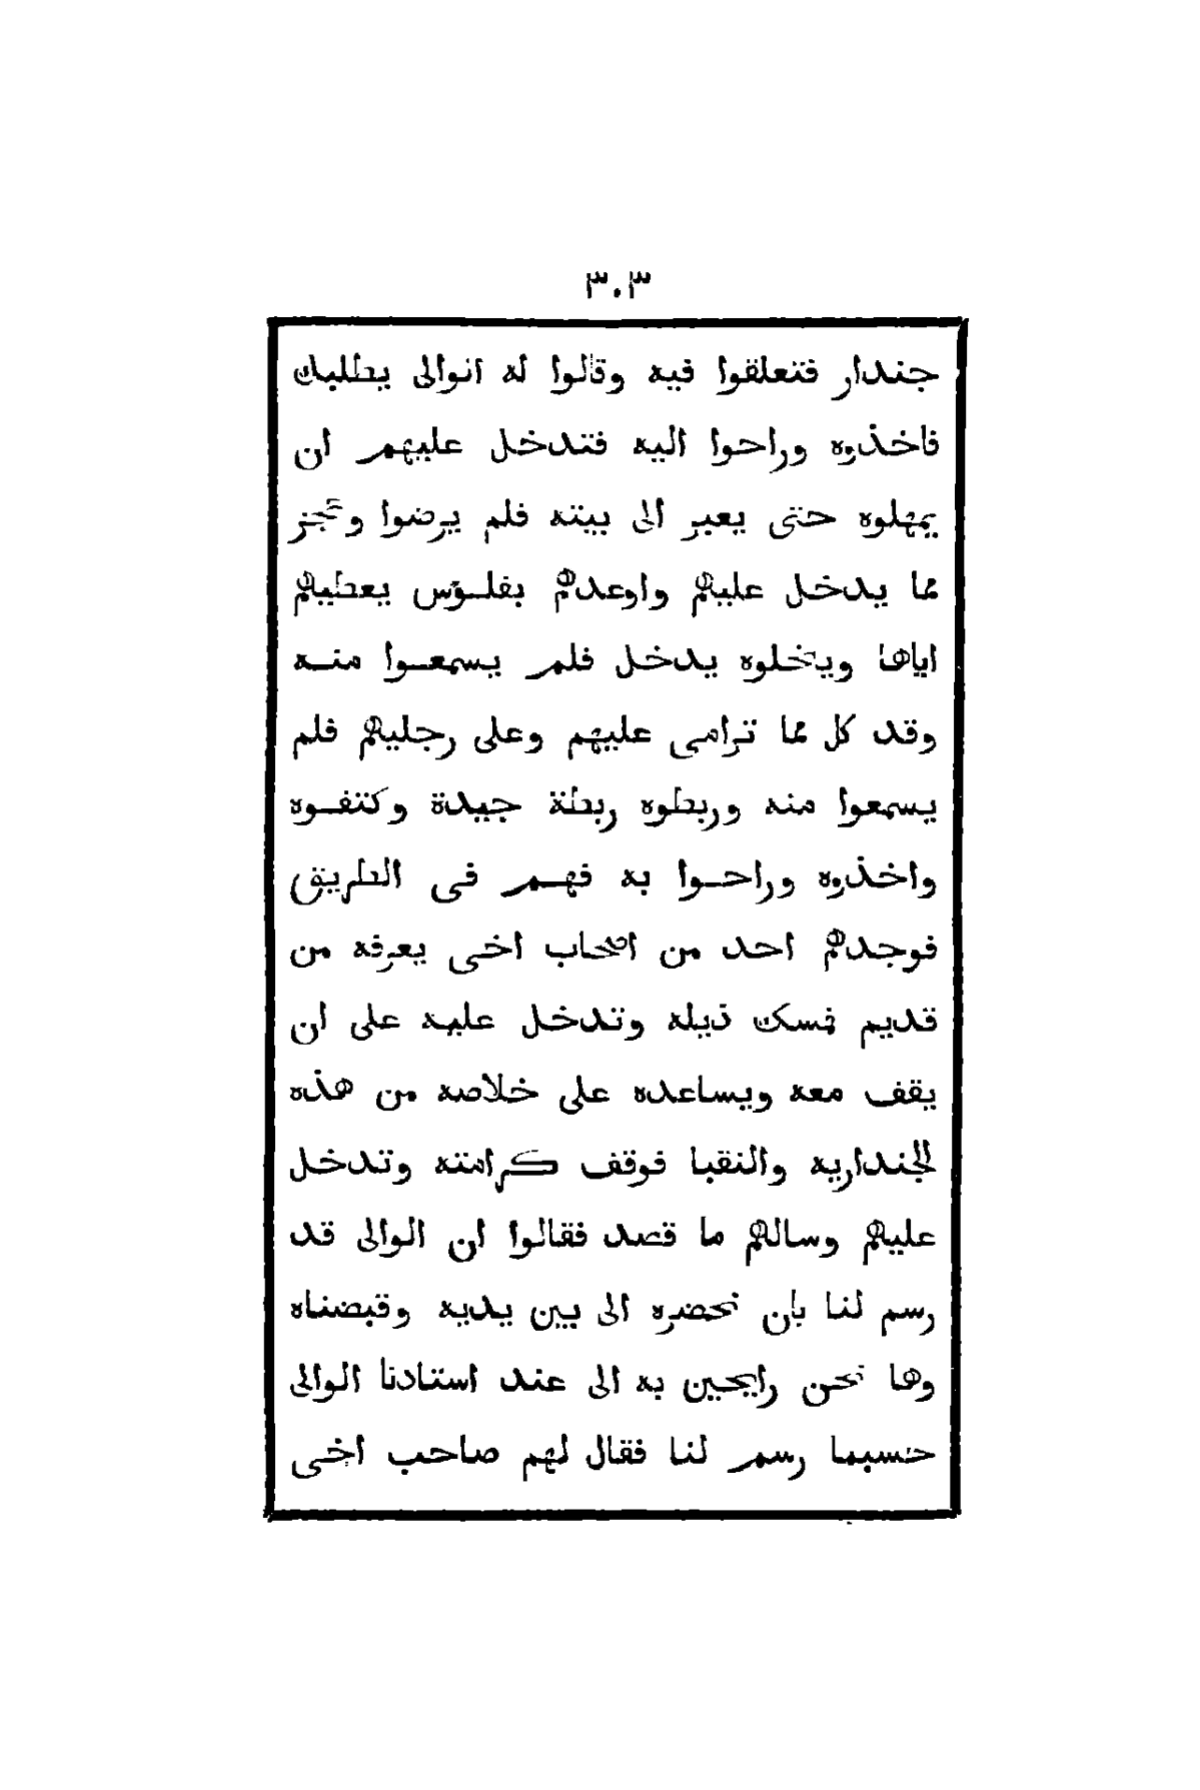 ٣٠٣
جندار فتعلقوا فيه وقالوا له الوالى يطلبك
فاخذوه وراحوا اليه فتدخل عليهم ان
يمهلوه حتى يعبر الى بيته فلم يرضوا وعجز
مما يدخل عليهم واوعدهم بفلوس يعطيهم
اياها ويخلوه يدخل فلم يسمعوا منه
وقد كل مما ترامى عليهم وعلى رجليهم فلم
يسمعوا منه وربطوه ربطة جيدة وكتفوه
واخذوه وراحوا به فهم فى الطريق
فوجدهم احد من اصحاب اخى يعرفه من
قديم فمسك ذيله وتدخل عليه على ان
يقف معه ويساعده على خلاصه من هذه
الجنداريه والنقبا فوقف كرامته وتدخل
عليهم وسالهم ما قصد فقالوا ان الوالى قد
رسم لنا بان نحضره الى بين يديه وقبضناه
وها نحن رايحين به الى عند استادنا الوالى
حسبما رسم لنا فقال لهم صاحب اخى